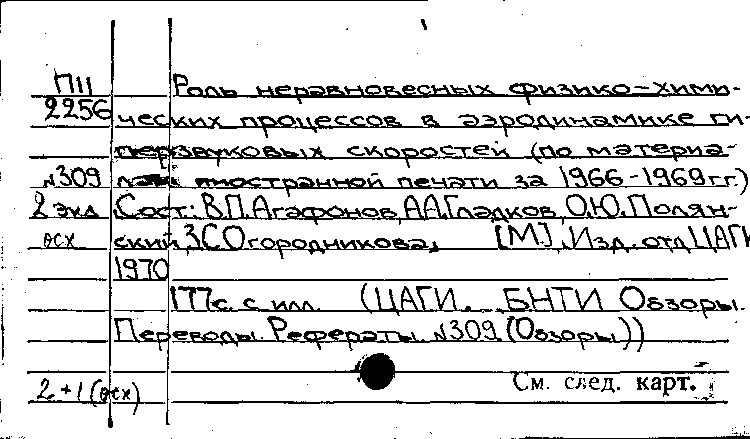 П11 Роль неравновесных физико-хими-
2256 ческих процессов в аэродинамике ги-
перзвуковых скоростей (по материа-
№309 лам иностранной печати за 1966-1969гг.)
2 экз Сост.: В.П.Агафонов, А.А.Гладков, О.Ю.Полян-
осх ский, З.С.Огородникова, [М.], Изд. отд ЦАГИ
1970
177с. с илл. (ЦАГИ. БНТИ Обзоры.
Переводы. Рефераты №309. (Обзоры))
См. след. карт.
2+1(осх)